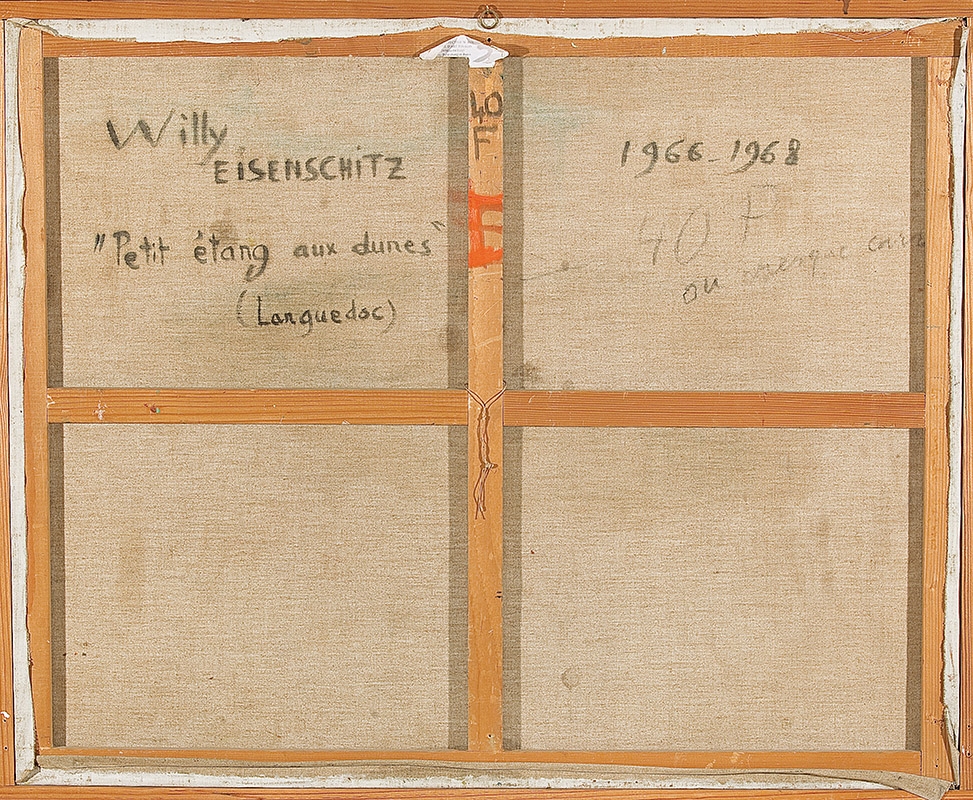 Willy
EISENSCHITZ
"Petit étang aux dunes"
(Languedoc)
40
F
1966-1968
40 F
ou presque